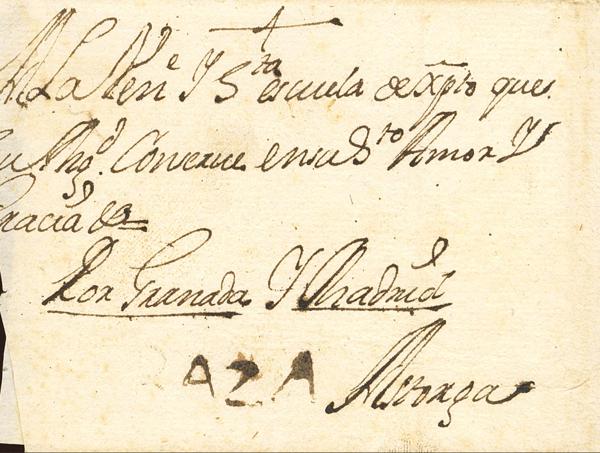 A La Vene Y Sta escuela de Xpto que
su Mgd. Conserue en su Sto Amor Y
Gracia &a
Por Granada Y Madrid
AZA Astorga